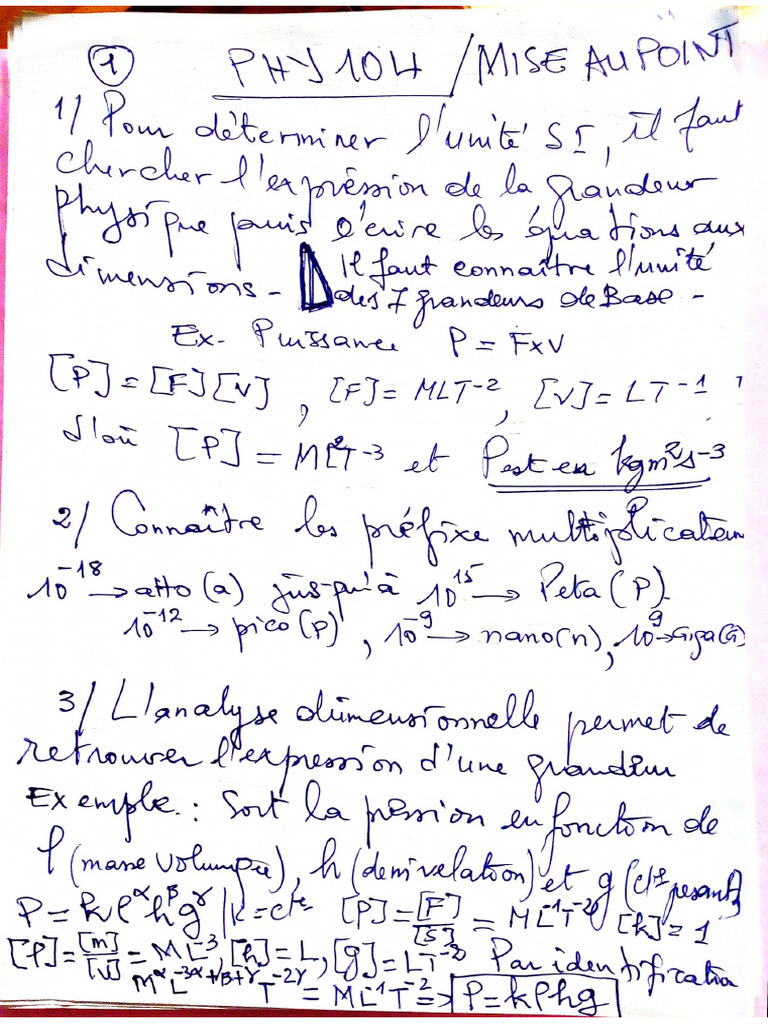 1 PHY104 / MISE AU POINT
1) Pour déterminer l'unité SI, il faut
chercher l'expréssion de la grandeur
physique puis écrire les équations aux
dimensions - Il faut connaître l'unité
des 7 grandeurs de Base -
Ex - Puissance P = F×V
[P] = [F][V], [F] = MLT⁻², [V] = LT⁻¹
d'où [P] = ML²T⁻³ et P est en kgm²s⁻³
2/ Connaître les préfixe multiplicateur
10⁻¹⁸ → atto (a) jusqu'à 10¹⁵ → Peta (P)
10⁻¹² → pico (p), 10⁻⁹ → nano (n), 10⁹ → Giga (G)
3/ L'analyse dimensionnelle permet de
retrouver l'expression d'une grandeur
Exemple : Soit la pression en fonction de
ρ (masse volumique), h (denivelation) et g (cte pesant)
P = kρᵅhᵝgᵞ / k = cte [P] = [F]/[S] = ML⁻¹T⁻² [k] = 1
[ρ] = [m]/[V] = ML⁻³, [h] = L, [g] = LT⁻² Par identification
MᵅL⁻³ᵅ⁺ᵝ⁺ᵞT⁻²ᵞ = ML⁻¹T⁻² ⇒ P = kρhg